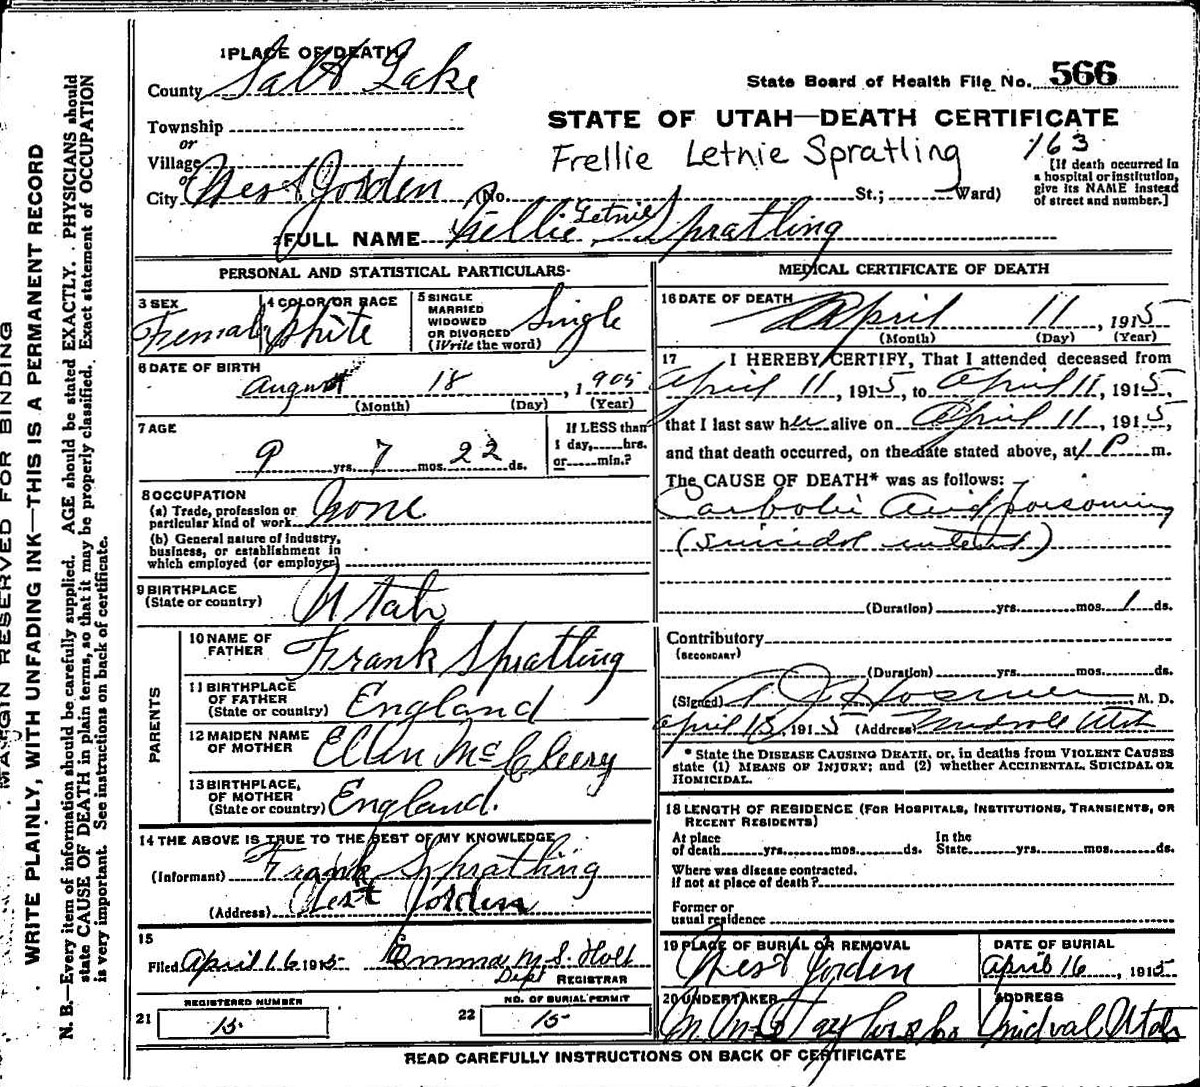 MARGIN RESERVED FOR BINDING
WRITE PLAINLY, WITH UNFADING INK—THIS IS A PERMANENT RECORD
N. B.—Every item of information should be carefully supplied. AGE should be stated EXACTLY. PHYSICIANS should
state CAUSE OF DEATH in plain terms, so that it may be properly classified. Exact statement of OCCUPATION
is very important. See instructions on back of certificate.
1 PLACE OF DEATH
County Salt Lake
Township
or
Village
or
City West Jorden (No. St.; Ward)
State Board of Health File No. 566
STATE OF UTAH—DEATH CERTIFICATE
Frellie Letnie Spratling 163
[If death occurred in
a hospital or institution,
give its NAME instead
of street and number.]
2 FULL NAME Letnie Spratling
PERSONAL AND STATISTICAL PARTICULARS
3 SEX Female
4 COLOR OR RACE White
5 SINGLE
MARRIED
WIDOWED
OR DIVORCED
(Write the word) Single
6 DATE OF BIRTH
August 18, 1905
(Month) (Day) (Year)
7 AGE
9 yrs. 7 mos. 22 ds.
If LESS than
1 day, hrs.
or min.?
8 OCCUPATION
(a) Trade, profession or
particular kind of work None
(b) General nature of industry,
business, or establishment in
which employed (or employer)
9 BIRTHPLACE
(State or country) Utah
PARENTS
10 NAME OF
FATHER Frank Spratling
11 BIRTHPLACE
OF FATHER
(State or country) England
12 MAIDEN NAME
OF MOTHER Ellen McCleery
13 BIRTHPLACE,
OF MOTHER
(State or country) England.
14 THE ABOVE IS TRUE TO THE BEST OF MY KNOWLEDGE
(Informant) Frank Spratling
(Address) West Jorden
15
Filed April 16 1915 Emma M. S. Holt
Dept REGISTRAR
REGISTERED NUMBER
21 15
NO. OF BURIAL PERMIT
22 15
MEDICAL CERTIFICATE OF DEATH
16 DATE OF DEATH
April 11, 1915
(Month) (Day) (Year)
17 I HEREBY CERTIFY, That I attended deceased from
April 11, 1915, to April 11, 1915,
that I last saw her alive on April 11, 1915,
and that death occurred, on the date stated above, at 1 P m.
The CAUSE OF DEATH* was as follows:
Carbolic Acid poisoning
(Suicidal intent)
(Duration) yrs. mos. 1 ds.
Contributory
(SECONDARY)
(Duration) yrs. mos. ds.
(Signed) M. D.
April 15, 1915 (Address) Midvale Utah
* State the DISEASE CAUSING DEATH, or, in deaths from VIOLENT CAUSES
state (1) MEANS OF INJURY; and (2) whether ACCIDENTAL, SUICIDAL OR
HOMICIDAL.
18 LENGTH OF RESIDENCE (FOR HOSPITALS, INSTITUTIONS, TRANSIENTS, OR
RECENT RESIDENTS)
At place
of death yrs. mos. ds.
In the
State yrs. mos. ds.
Where was disease contracted.
If not at place of death?
Former or
usual residence
19 PLACE OF BURIAL OR REMOVAL
West Jorden
DATE OF BURIAL
April 16, 1915
20 UNDERTAKER
ADDRESS
Midval, Utah
READ CAREFULLY INSTRUCTIONS ON BACK OF CERTIFICATE